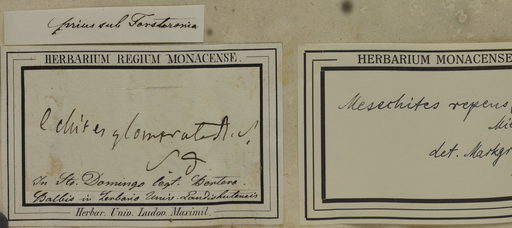 prius sub Forsteronia
HERBARIUM REGIUM MONACENSE.
Echites glomerata
S. d
In Sto. Domingo legt. Bertero
Balbis in herbario Univ. Landishutensis
Herbar. Univ. Ludov. Maximil.
HERBARIUM MONACENSE
Mesechites repens
Mie
det. Markgr